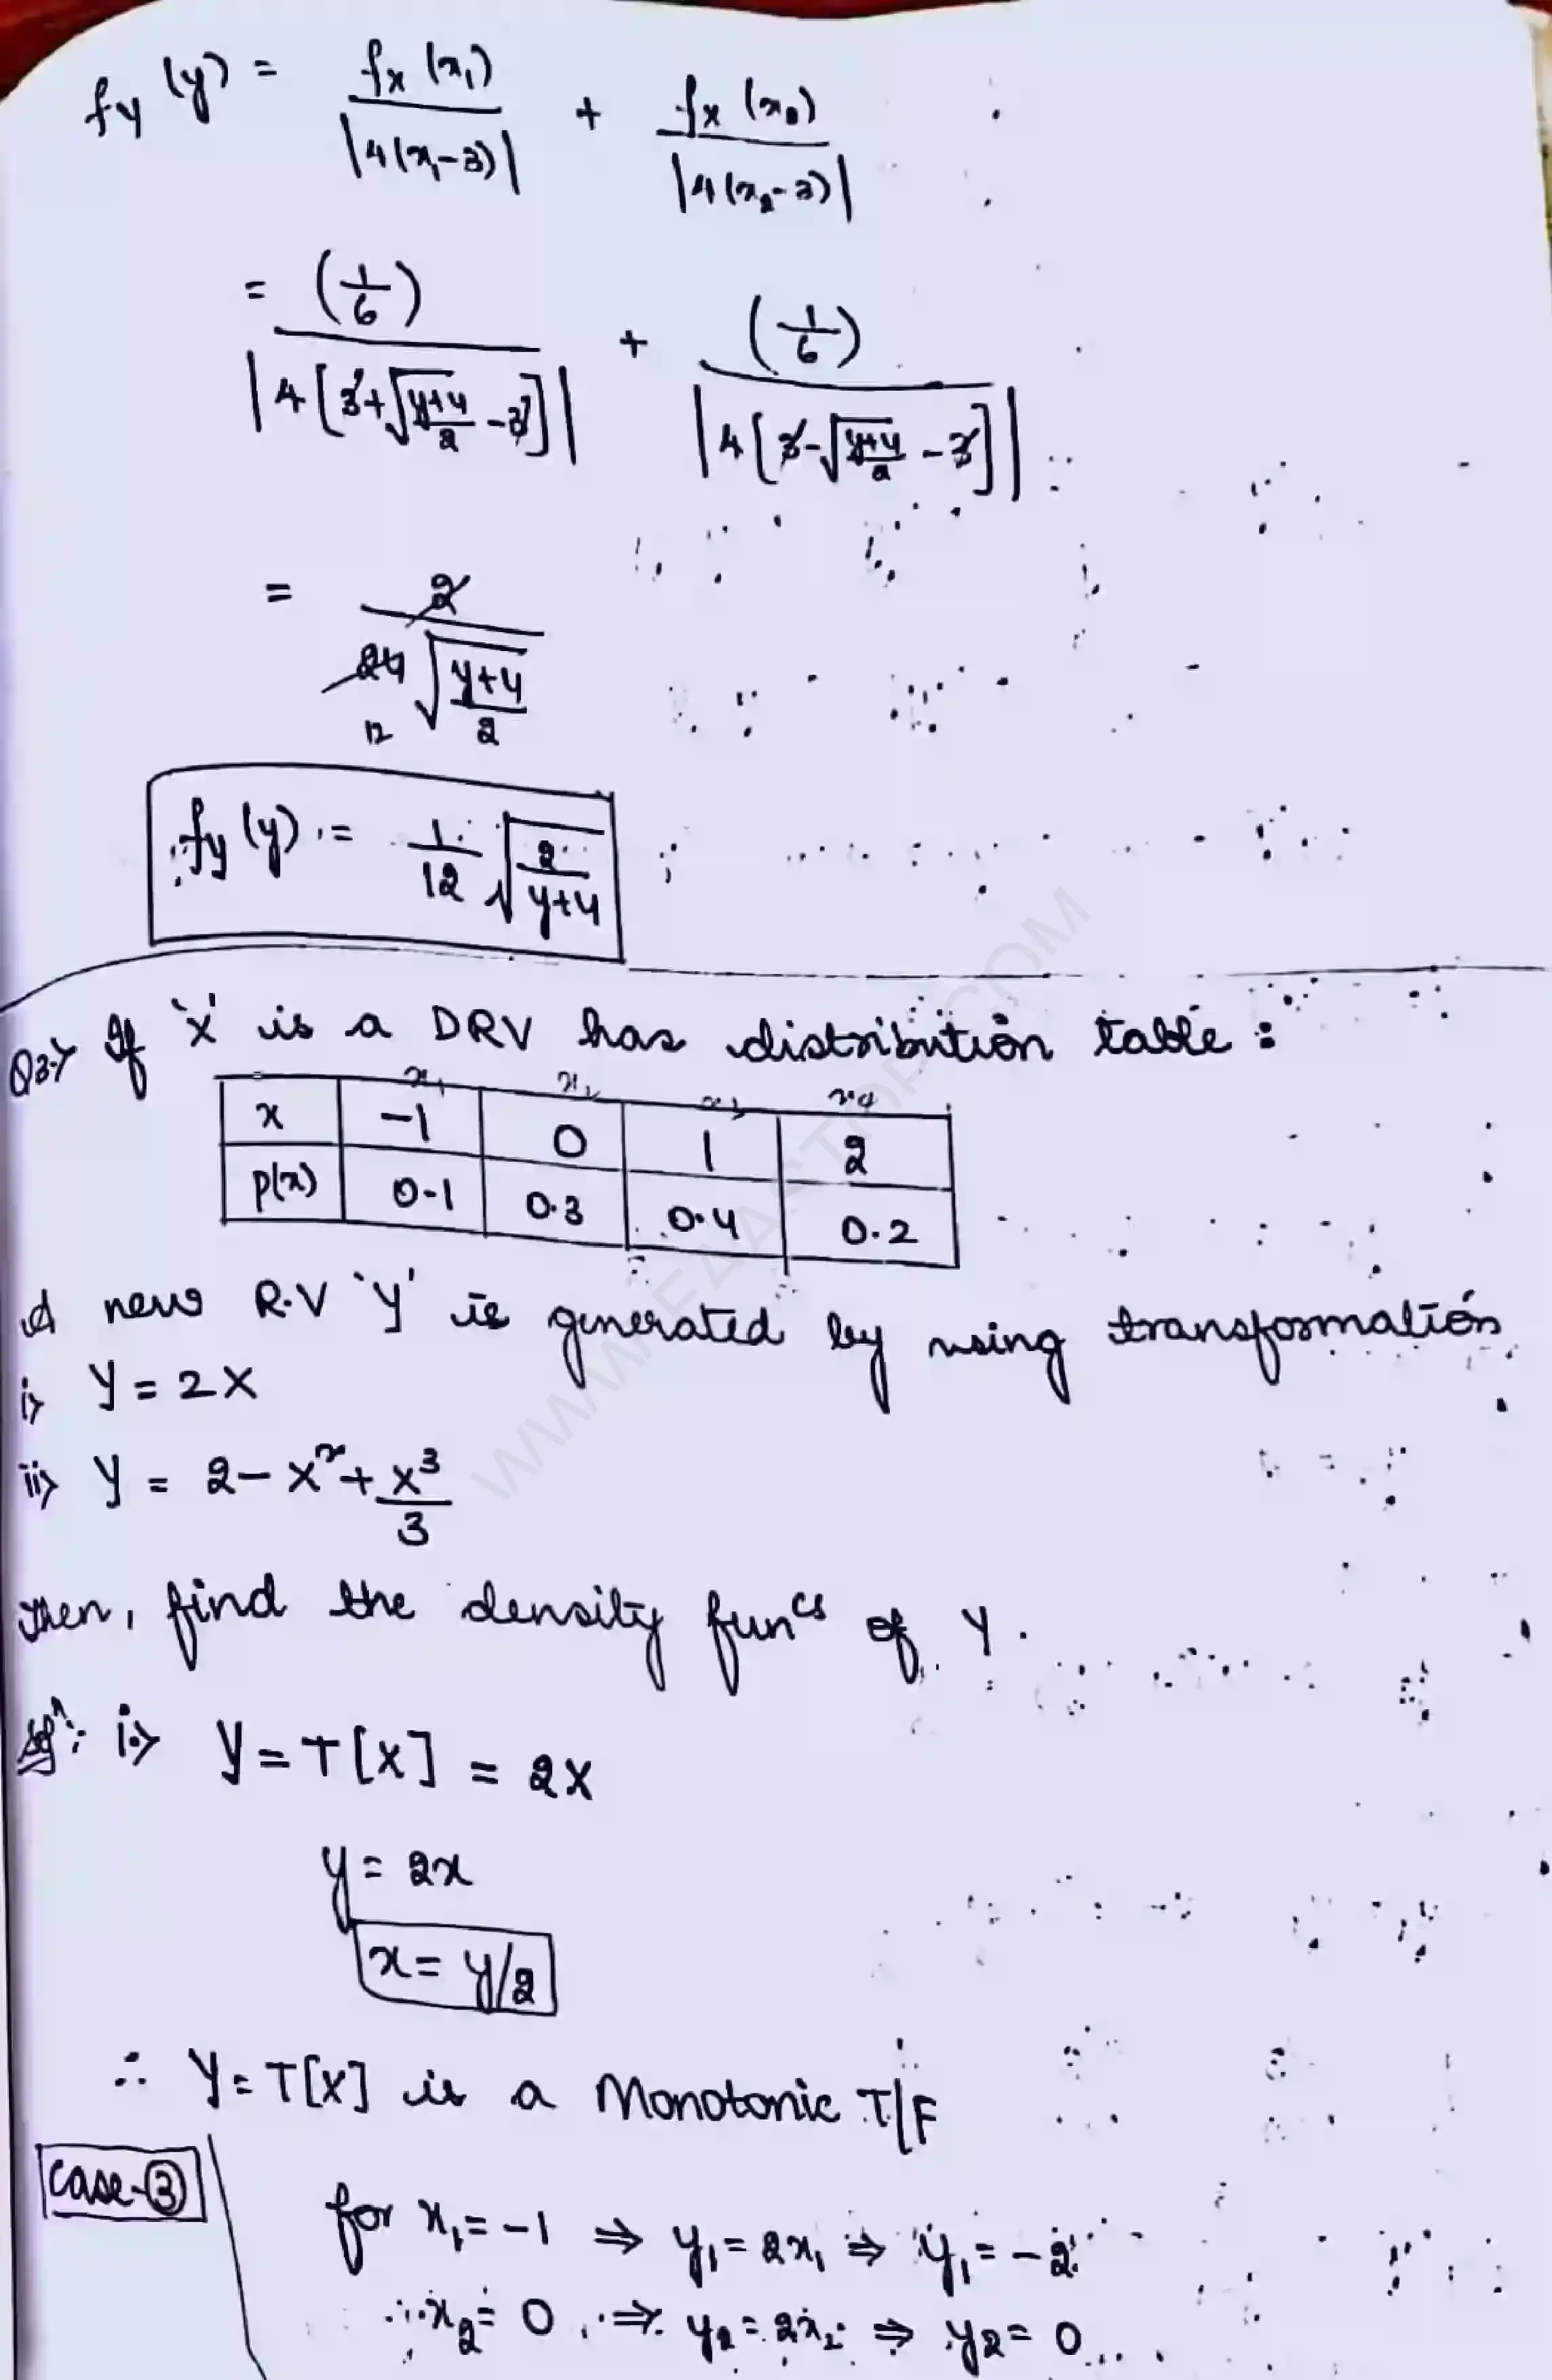 fy (y) = fx (x₁) / |4(x₁-3)| + fx (x₂) / |4(x₂-3)|
= (1/6) / |4[3+√((y+4)/2) -3]| + (1/6) / |4[3-√((y+4)/2) -3]|
= 2 / 24 √((y+4)/2)
12
fy (y) = 1/12 √(2/(y+4)) ;
Q3> If 'X' is a DRV has distribution table :
x₁ x₂ x₃ x₄
x -1 0 1 2
p(x) 0.1 0.3 0.4 0.2
A new R.V 'Y' is generated by using transformation
i> Y = 2X
ii> Y = 2 - X² + X³/3
Then, find the density funcs of Y.
Solⁿ: i.> Y = T[X] = 2X
y = 2x
x = y/2
∴ Y = T[X] is a Monotonic T/F
Case-③
for x₁ = -1 ⇒ y₁ = 2x₁ ⇒ y₁ = -2
x₂ = 0 ⇒ y₂ = 2x₂ ⇒ y₂ = 0
WWW.EAACTOP.COM